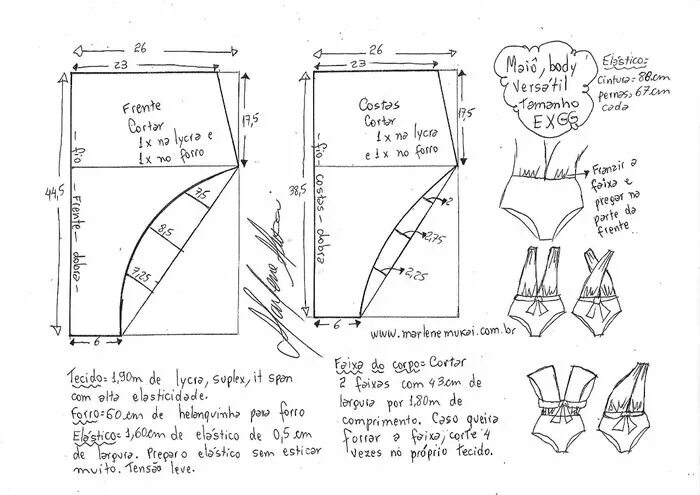 26
23
17,5
44,5
Frente
Cortar
1x na lycra e
1x no forro
fio
Frente - dobra
7,5
8,5
7,25
6
26
23
17,5
38,5
Costas
Cortar
1x na lycra
e 1x no forro
fio - costas - dobra
2
2,75
2,25
6
Marlene Mukai
www.marlenemukai.com.br
Maiô, body
versátil
Tamanho
EXGG
Elástico=
cintura= 88cm
pernas= 67cm
cada
Franzir a
faixa e
pregar na
parte da
frente
Tecido= 1,90m de lycra, suplex, it span
com alta elasticidade.
Forro= 60cm de helanquinha para forro
Elástico= 1,60cm de elástico de 0,5cm
de largura. Pregar o elástico sem esticar
muito. Tensão leve.
Faixa do corpo= Cortar
2 faixas com 43cm de
largura por 1,80m de
comprimento. Caso queira
forrar a faixa, corte 4
vezes no próprio tecido.